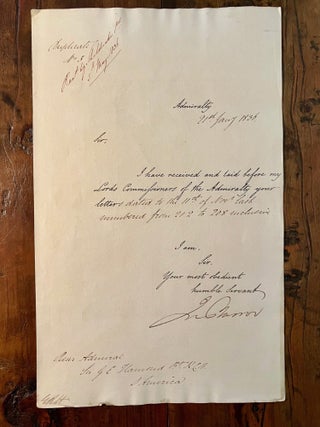 Duplicate
No 5
Admiralty
21st Jany 1836
Sir,
I have received and laid before my
Lords Commissioners of the Admiralty your
letters dated to the 11th of Novr last
numbered from 202 to 208 inclusive
I am,
Sir,
Your most obedient
humble Servant
Jn Barrow
Rear Admiral
Sir G E Hamond Bt KCB
S America